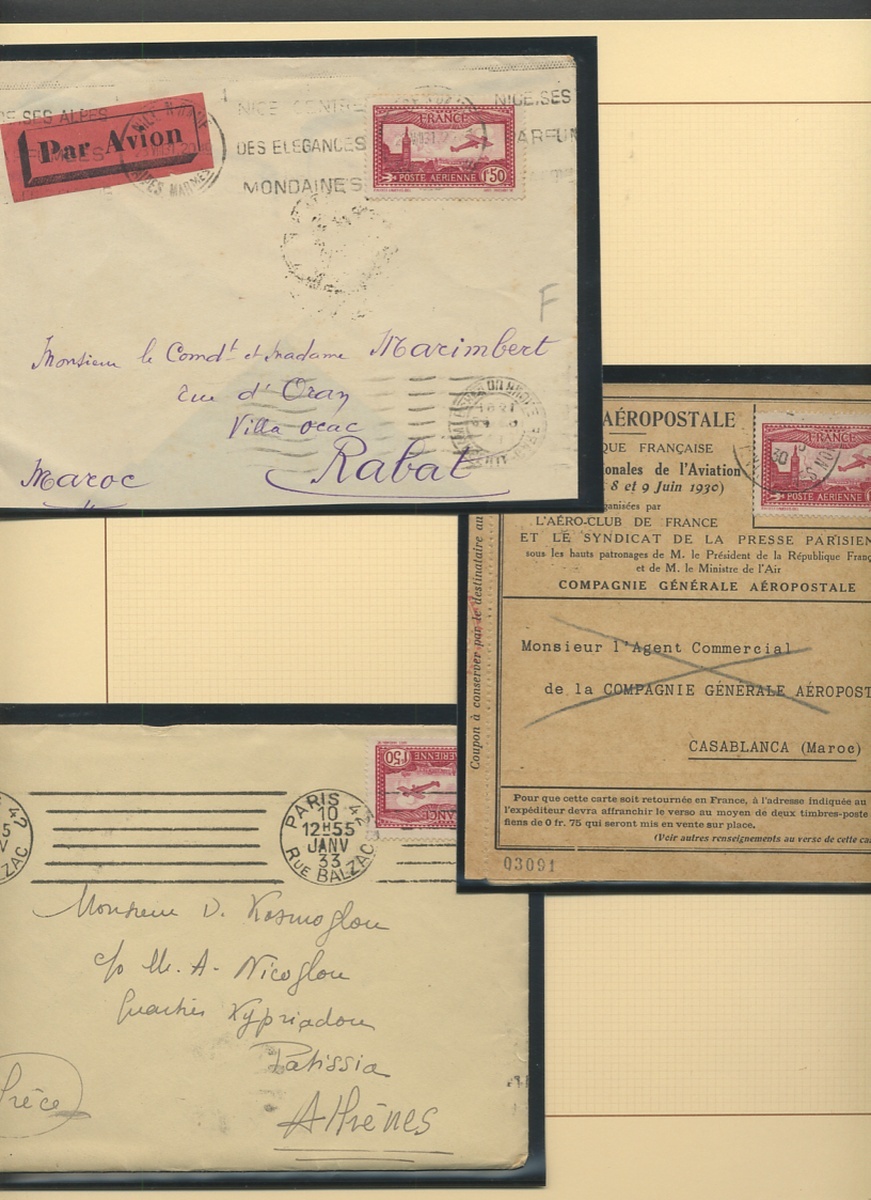 DE.SES ALPES
Par Avion
NICE
DES ELEGANCES
MONDAINES
NICE.SES
FRANCE
POSTE AERIENNE
1f50
F
Monsieur le Comdt et Madame Marimbert
rue d'Oran
Villa
Rabat
Maroc
AÉROPOSTALE
QUE FRANÇAISE
onales de l'Aviation
8 et 9 Juin 1930)
ganisées par
L'AÉRO-CLUB DE FRANCE
ET LE SYNDICAT DE LA PRESSE PARISIEN
sous les hauts patronages de M. le Président de la République Franç
et de M. le Ministre de l'Air
COMPAGNIE GÉNÉRALE AÉROPOSTALE
FRANCE
POSTE AERIENNE
30
Coupon à conserver par le destinataire au
Monsieur l'Agent Commercial
de la COMPAGNIE GÉNÉRALE AÉROPOST
CASABLANCA (Maroc)
Pour que cette carte soit retournée en France, à l'adresse indiquée au
l'expéditeur devra affranchir le verso au moyen de deux timbres-poste
fiens de 0 fr. 75 qui seront mis en vente sur place.
(Voir autres renseignements au verso de cette ca
03091
1f50
PARIS 42
10
12H55
JANV
33
RUE BALZAC
Monsieur D. Kosmoglou
c/o M. A. Nicoglou
Quartier Kypriadou
Patissia
Athènes
Grèce